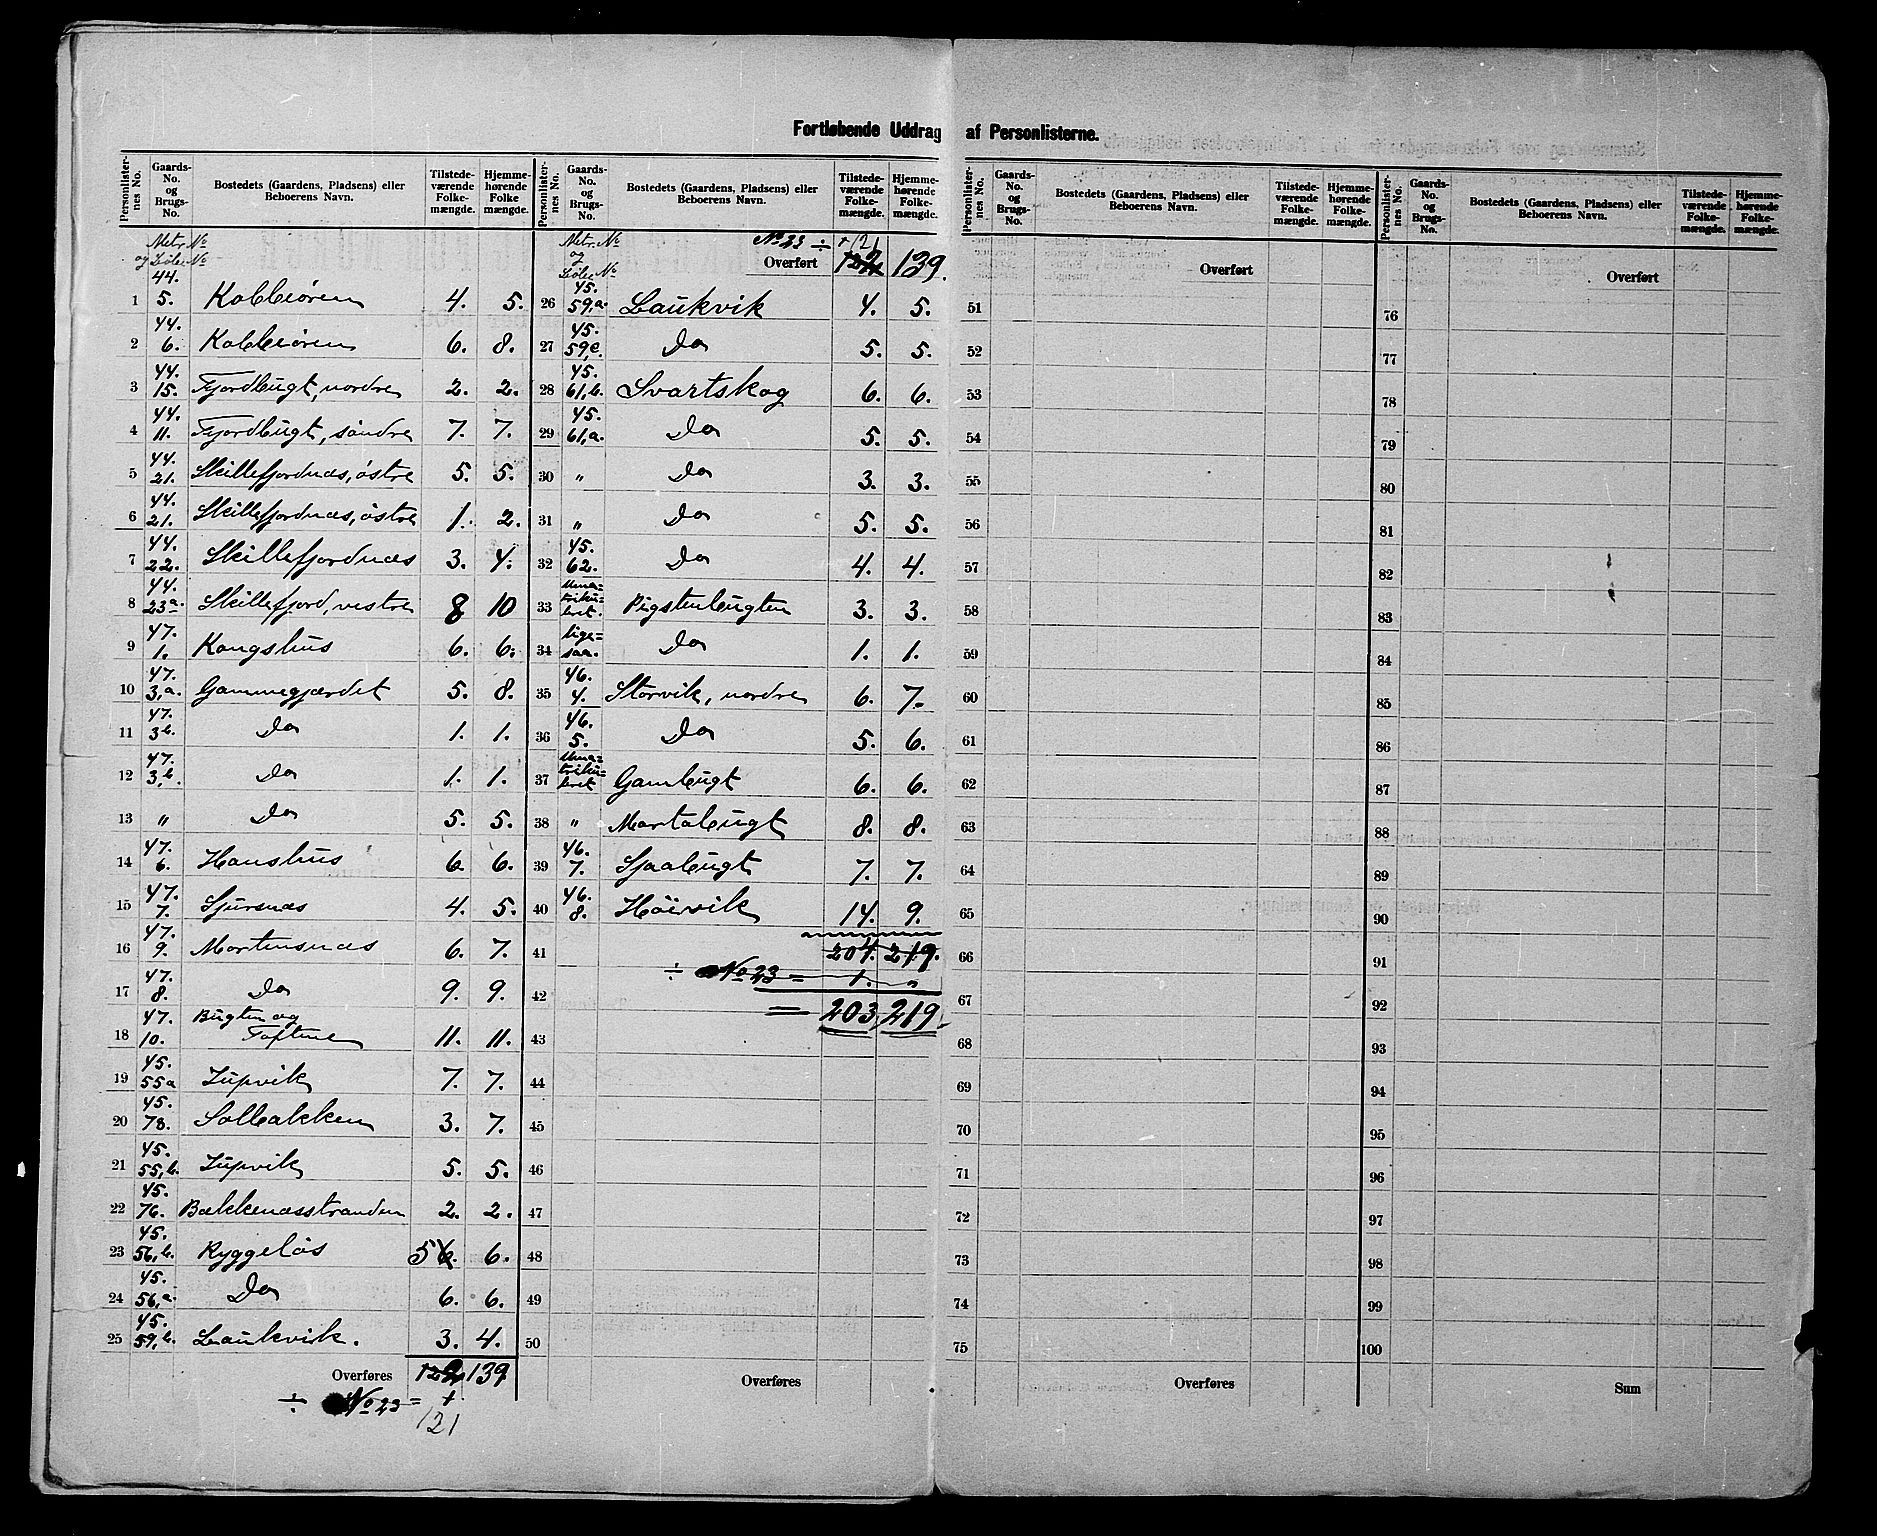 Fortløbende Uddrag af Personlisterne.
Personlister-nes No. | Gaards-No. og Brugs-No. | Bostedets (Gaardens, Pladsens) eller Beboerens Navn. | Tilstede-værende Folke-mængde. | Hjemme-hørende Folke mængde.
Matr. No og Løbe No
1 44. 5. Kobbeören 4. 5.
2 44. 6. Kobbeören 6. 8.
3 44. 15. Fjordbugt, nordre 2. 2.
4 44. 11. Fjordbugt, söndre 7. 7.
5 44. 21. Skillefjordnæs, östre 5. 5.
6 44. 21. Skillefjordnæs, östre 1. 2.
7 44. 22. Skillefjordnæs 3. 4.
8 44. 23a. Skillefjord, vestre 8 10
9 47. 1. Kongshus 6. 6.
10 47. 3,a. Gammegjærdet 5. 8.
11 47. 3b. Do 1. 1.
12 47. 3,b. Do 1. 1.
13 " Do 5. 5.
14 47. 6. Hanshus 6. 6.
15 47. 7. Sjursnæs 4. 5.
16 47. 9. Mortensnæs 6. 7.
17 47. 8. Do 9. 9.
18 47. 10. Bugten og Toftene 11. 11.
19 45. 55a Jupvik 7. 7.
20 45. 78. Solbakken 3. 7.
21 45. 55,b. Jupvik 5. 5.
22 45. 76. Bækkenæsstranden 2. 2.
23 45. 56,b. Ryggeløs 5 6. 6.
24 45. 56,a. Do 6. 6.
25 45. 59,b. Laukvik. 3. 4.
Overføres 122 139
÷ No 23 = 1
121
Personlister-nes No. | Gaards-No. og Brugs-No. | Bostedets (Gaardens, Pladsens) eller Beboerens Navn. | Tilstede-værende Folke-mængde. | Hjemme-hørende Folke-mængde.
Matr. No og Løbe No
No 23 ÷ 1 121
Overført 122 139.
26 45. 59,a. Laukvik 4. 5.
27 45. 59,c. Do 5. 5.
28 45. 61,b. Svartskog 6. 6.
29 45. 61,a. Do 5. 5.
30 " Do 3. 3.
31 " Do 5. 5.
32 45. 62. Do 4. 4.
33 Uma-triku-leret. Pigstenbugten 3. 3.
34 lige-saa. Do 1. 1.
35 46. 4. Storvik, nordre 6. 7.
36 46. 5. Do 5. 6.
37 Uma-triku-leret Gambugt 6. 6.
38 " Martabugt 8. 8.
39 46. 7. Sjaabugt 7. 7.
40 46. 8. Höivik 14. 9.
41 204. 219.
÷ No 23 = 1. "
42
= 203 219
43
44
45
46
47
48
49
50
Overføres
Personlister-nes No. | Gaards-No. og Brugs-No. | Bostedets (Gaardens, Pladsens) eller Beboerens Navn. | Tilstede-værende Folke-mængde. | Hjemme-hørende Folke-mængde.
Overført
51
52
53
54
55
56
57
58
59
60
61
62
63
64
65
66
67
68
69
70
71
72
73
74
75
Overføres
Personlister-nes No. | Gaards-No. og Brugs-No. | Bostedets (Gaardens, Pladsens) eller Beboerens Navn. | Tilstede-værende Folke-mængde. | Hjemme-hørende Folke-mængde.
Overført
76
77
78
79
80
81
82
83
84
85
86
87
88
89
90
91
92
93
94
95
96
97
98
99
100
Sum